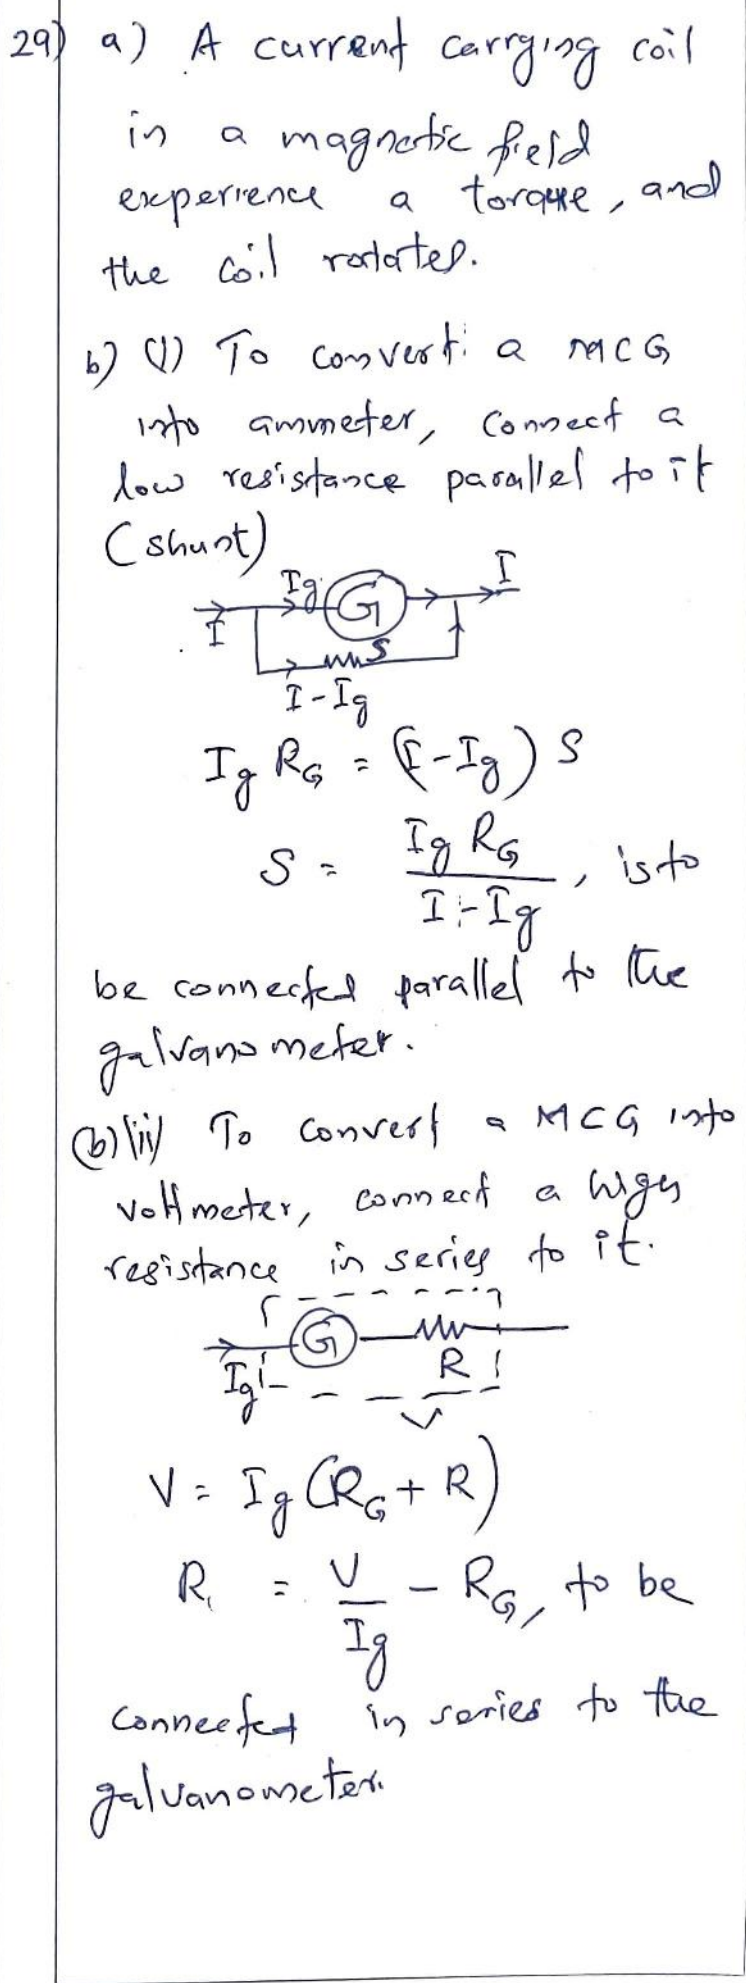 29) a) A current carrying coil
in a magnetic field
experience a torque, and
the coil rotates.
b) (i) To convert a MCG
into ammeter, connect a
low resistance parallel to it
(shunt)
Ig G I
I S
I - Ig
Ig RG = (I - Ig) S
S = Ig RG / I - Ig , is to
be connected parallel to the
galvanometer.
(b) (ii) To convert a MCG into
voltmeter, connect a
resistance in series to it.
G
Ig R
V
V = Ig (RG + R)
R = V / Ig - RG, to be
connected in series to the
galvanometer.